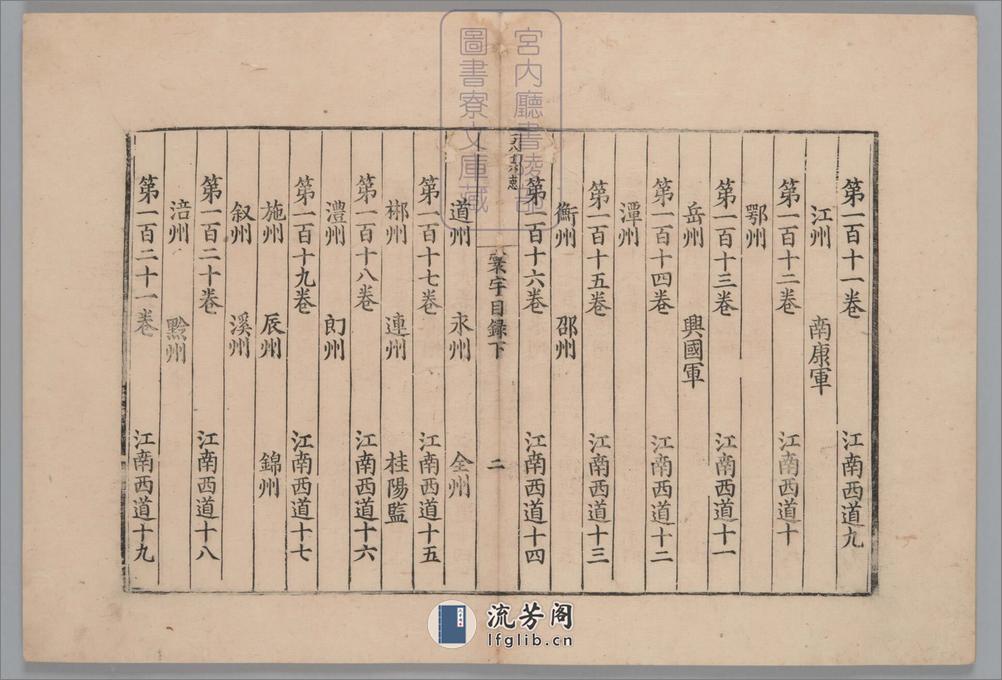 第一百十一卷　江南西道九
江州　南康軍
第一百十二卷　江南西道十
鄂州
第一百十三卷　江南西道十一
岳州　興國軍
第一百十四卷　江南西道十二
潭州
第一百十五卷　江南西道十三
衡州　邵州
第一百十六卷　江南西道十四
寰宇目録下　二
道州　永州　全州
第一百十七卷　江南西道十五
郴州　連州　桂陽監
第一百十八卷　江南西道十六
澧州　朗州
第一百十九卷　江南西道十七
施州　辰州　錦州
叙州　溪州
第一百二十卷　江南西道十八
涪州　黔州
第一百二十一卷　江南西道十九
宮内廳書陵部
圖書寮文庫藏
流芳阁
lfglib.cn